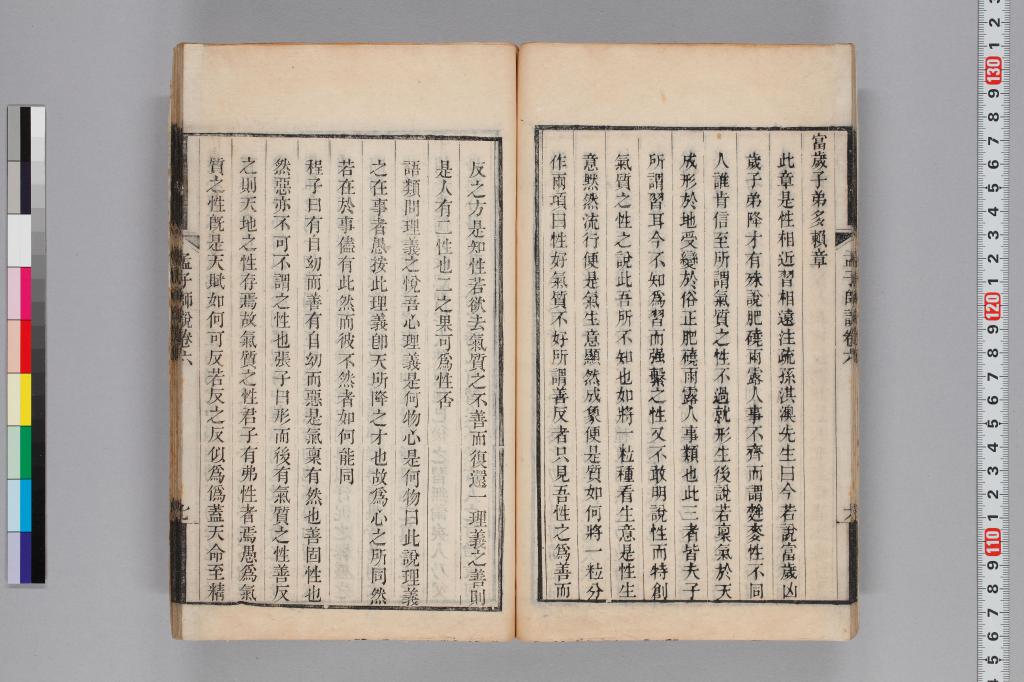 富歲子弟多賴章
此章是性相近習相遠注疏孫淇澳先生曰今若說富歲凶
歲子弟降才有殊說肥磽雨露人事不齊而謂麰麥性不同
人誰肯信至所謂氣質之性不過就形生後說若稟氣於天
成形於地受變於俗正肥磽雨露人事類也此三者皆夫子
所謂習耳今不知為習而强繫之性又不敢明說性而特創
氣質之性之說此吾所不知也如將一粒種看生意是性生
意默然流行便是氣生意顯然成象便是質如何將一粒分
作兩項曰性好氣質不好所謂善反者只見吾性之為善而
反之方是知性若欲去氣質之不善而復還一理義之善則
是人有二性也二之果可爲性否
語類問理義之悅吾心理義是何物心是何物曰此說理義
之在事者愚按此理義卽天所降之才也故爲心之所同然
若在於事儘有此然而彼不然者如何能同
程子曰有自幼而善有自幼而惡是氣稟有然也善固性也
然惡亦不可不謂之性也張子曰形而後有氣質之性善反
之則天地之性存焉故氣質之性君子有弗性者焉愚爲氣
質之性旣是天賦如何可反若反之反似爲僞蓋天命至精
孟子師說卷六
孟子師說卷六
七